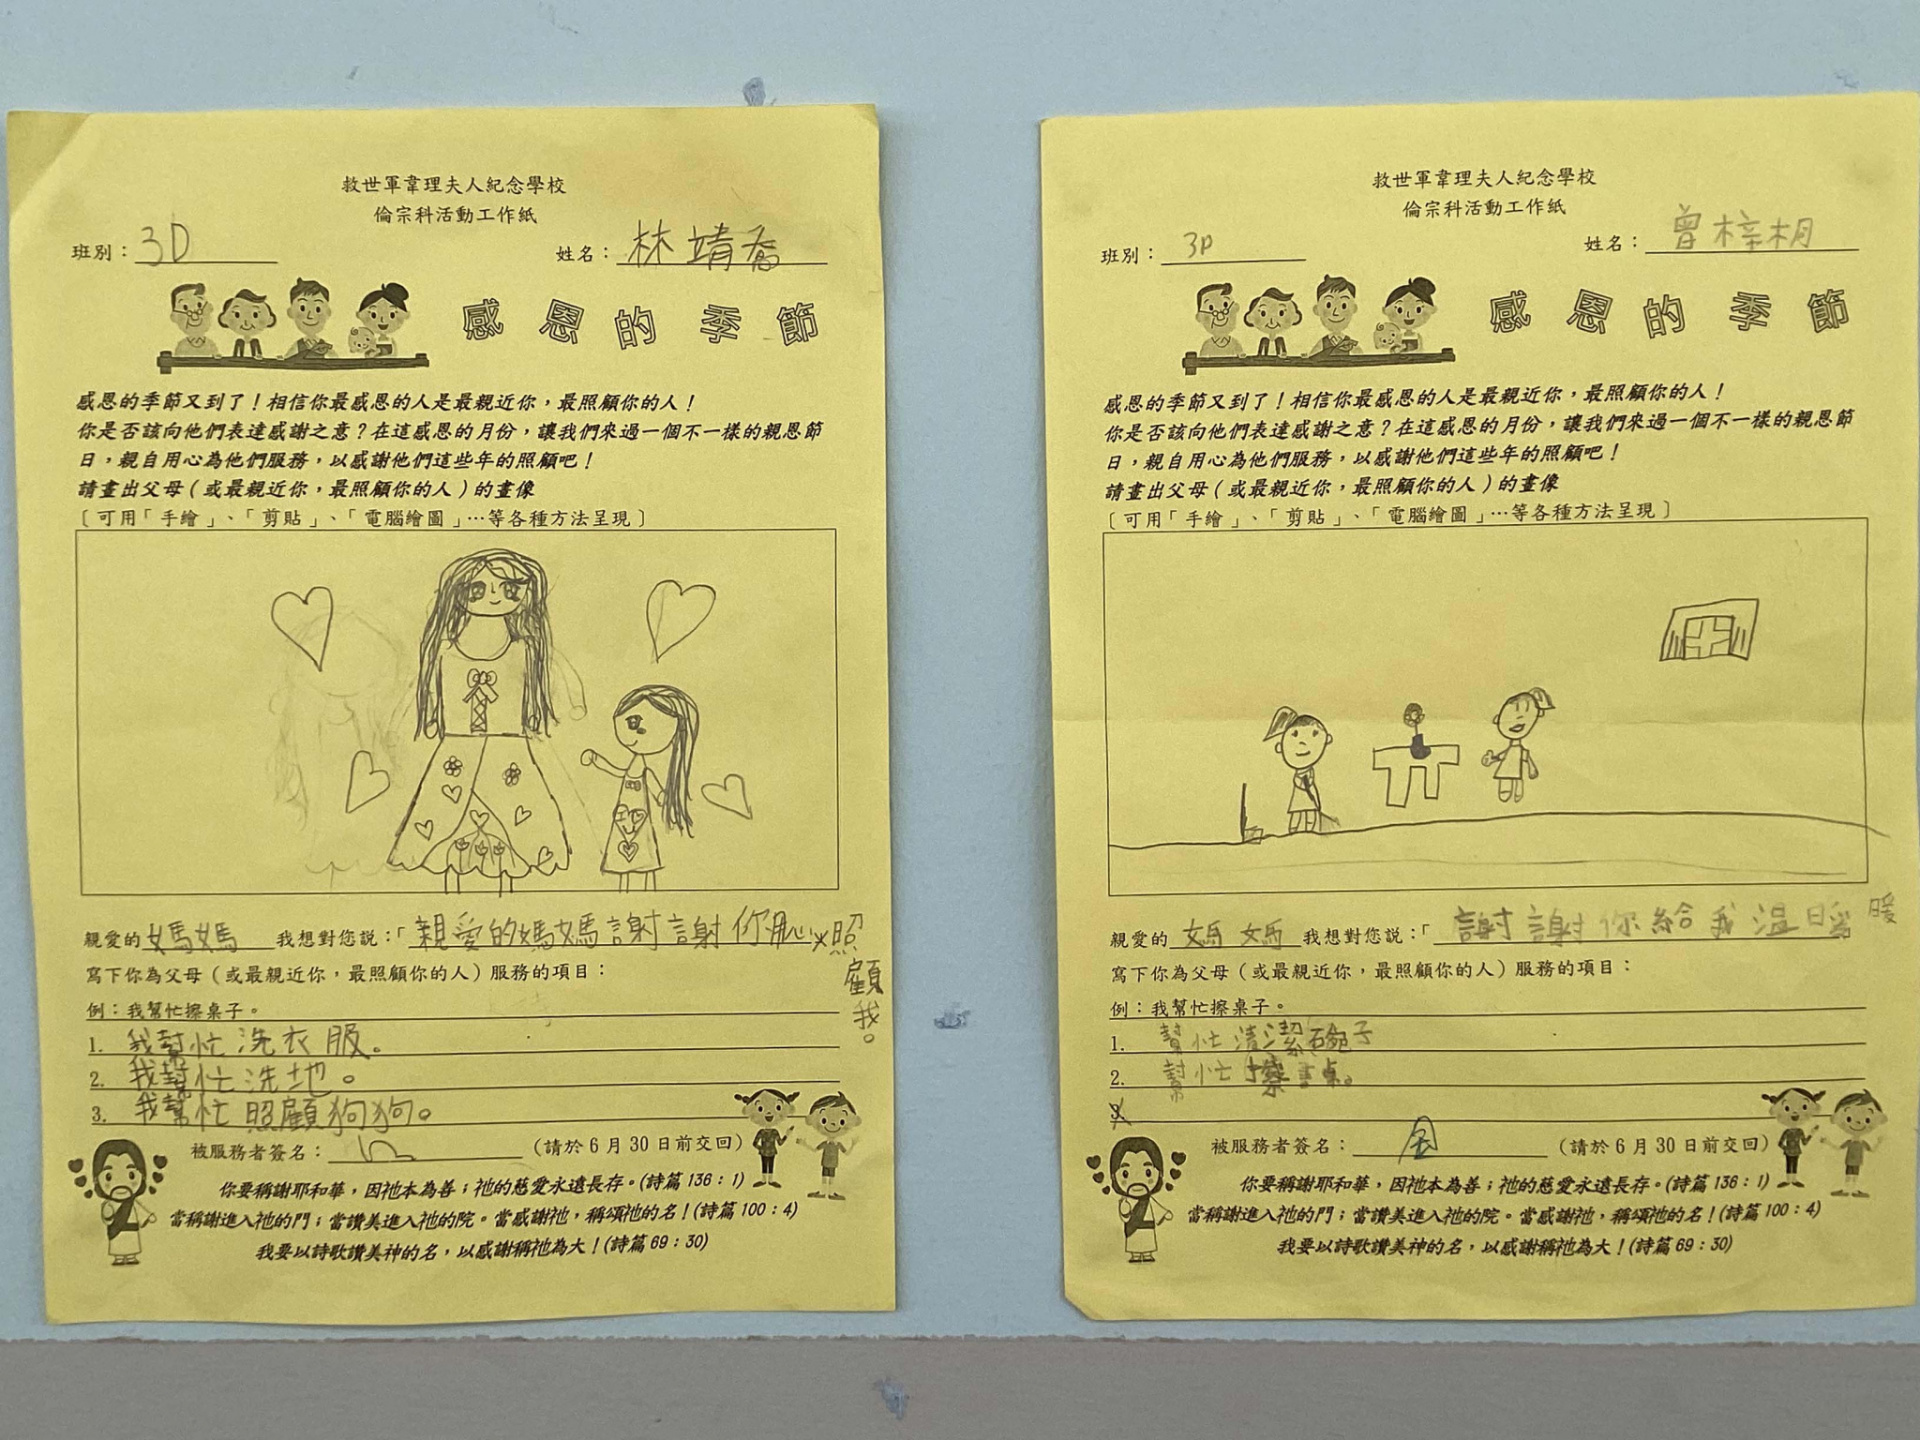 救世軍韋理夫人紀念學校
倫宗科活動工作紙
班別：3D 姓名：林靖喬
感恩的季節
感恩的季節又到了！相信你最感恩的人是最親近你，最照顧你的人！
你是否該向他們表達感謝之意？在這感恩的月份，讓我們來過一個不一樣的親恩節
日，親自用心為他們服務，以感謝他們這些年的照顧吧！
請畫出父母（或最親近你，最照顧你的人）的畫像
〔可用「手繪」、「剪貼」、「電腦繪圖」…等各種方法呈現〕
親愛的媽媽 我想對您說：「親愛的媽媽謝謝你用心照
顧
我。
寫下你為父母（或最親近你，最照顧你的人）服務的項目：
例：我幫忙擦桌子。
1. 我幫忙洗衣服。
2. 我幫忙洗地。
3. 我幫忙照顧狗狗。
被服務者簽名： （請於6月30日前交回）
你要稱謝耶和華，因祂本為善；祂的慈愛永遠長存。(詩篇136：1)
當稱謝進入祂的門；當讚美進入祂的院。當感謝祂，稱頌祂的名！(詩篇100：4)
我要以詩歌讚美神的名，以感謝稱祂為大！(詩篇69：30)
救世軍韋理夫人紀念學校
倫宗科活動工作紙
班別：3D 姓名：曾梓桐
感恩的季節
感恩的季節又到了！相信你最感恩的人是最親近你，最照顧你的人！
你是否該向他們表達感謝之意？在這感恩的月份，讓我們來過一個不一樣的親恩節
日，親自用心為他們服務，以感謝他們這些年的照顧吧！
請畫出父母（或最親近你，最照顧你的人）的畫像
〔可用「手繪」、「剪貼」、「電腦繪圖」…等各種方法呈現〕
親愛的 媽媽 我想對您說：「謝謝你給我溫暖 暖
寫下你為父母（或最親近你，最照顧你的人）服務的項目：
例：我幫忙擦桌子。
1. 幫忙清潔碗子
2. 幫忙擦書桌。
3.
被服務者簽名： （請於6月30日前交回）
你要稱謝耶和華，因祂本為善；祂的慈愛永遠長存。(詩篇136：1)
當稱謝進入祂的門；當讚美進入祂的院。當感謝祂，稱頌祂的名！(詩篇100：4)
我要以詩歌讚美神的名，以感謝稱祂為大！(詩篇69：30)